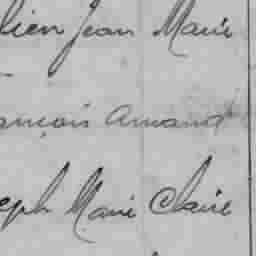 lien Jean Marie
ançois Armand
eph Marie Claire